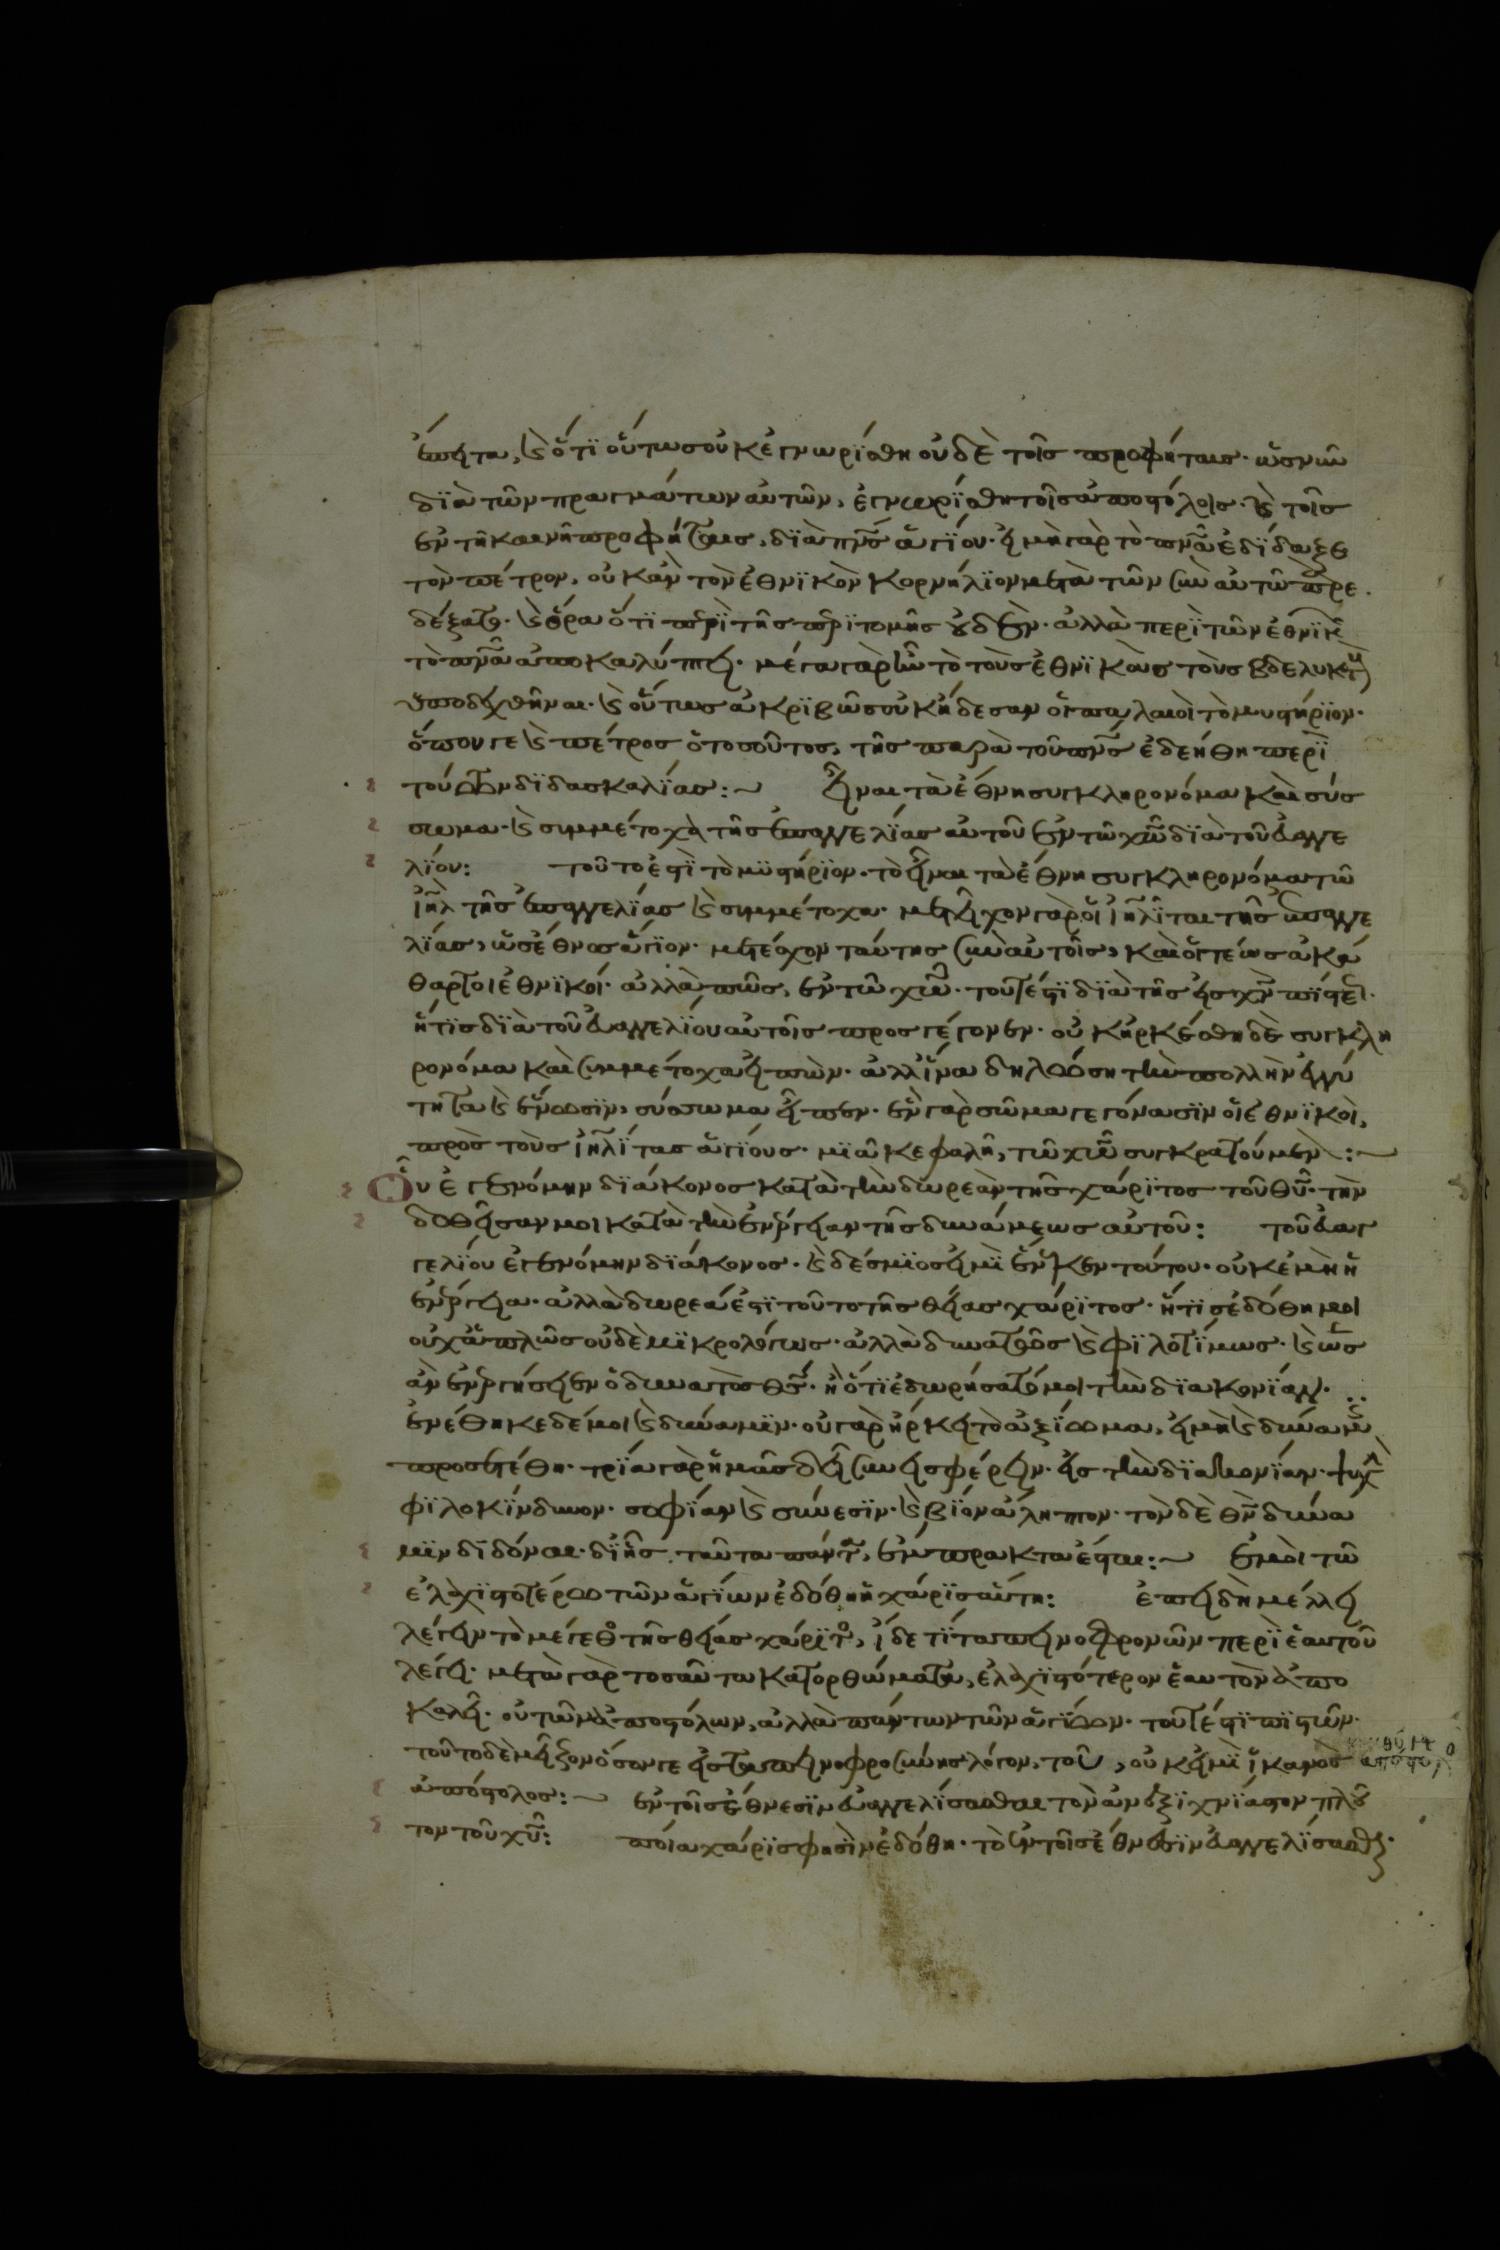 ἔπειτα, καὶ ὅτι οὕτως οὐκ ἐγνωρίσθη οὐδὲ τοῖς προφήταις· ὡς νῦν
διὰ τῶν πραγμάτων αὐτῶν, ἐγνωρίσθη τοῖς ἀποστόλοις· καὶ τοῖς
ἐν τῆ καινῆ προφήταις, διὰ πνς ἁγίου· εἰ μὴ γὰρ τὸ πνα ἐδίδαξε
τὸν πέτρον, οὐκ ἂν τὸν ἐθνικὸν κορνήλιον μετὰ τῶν σὺν αὐτῶ παρε
δέξατο· καὶ ὅρα ὅτι περὶ τῆς περιτομῆς οὐδὲν· ἀλλὰ περὶ τῶν ἐθνικῶν
τὸ πνα ἀποκαλύπτει· μέγα γὰρ ἦν τὸ τοὺς ἐθνικοὺς τοὺς βδελυκτοὺς
ὑποδεχθῆναι· καὶ οὕτως ἀκριβῶς οὐκ ἤδεσαν οἱ παλαιοὶ τὸ μυστήριον·
ὅπου γε καὶ πέτρος ὁ τοσοῦτος, τῆς παρὰ τοῦ πνς ἐδεήθη περὶ
τούτων διδασκαλίας:~ εἶναι τὰ ἔθνη συγκληρονόμα καὶ σύσ
σωμα· καὶ συμμέτοχα τῆς ἐπαγγελίας αὐτοῦ ἐν τῶ χω διὰ τοῦ εὐαγγε
λίου: τοῦτο ἐστὶ τὸ μυστήριον· τὸ εἶναι τὰ ἔθνη συγκληρονόμα τῶ
ἰηλ τῆς ἐπαγγελίας καὶ συμμέτοχα· μετεῖχον γὰρ οἱ ἰηλῖται τῆς ἐπαγγε
λίας, ὡς ἔθνος ἅγιον· μετέσχον ταύτης σὺν αὐτοῖς, καὶ οἱ τέως ἀκά
θαρτοι ἐθνικοί· ἀλλὰ πῶς, ἐν τῶ χω· τουτέστι διὰ τῆς εἰς χν πίστεως·
ἥτις διὰ τοῦ εὐαγγελίου αὐτοῖς προσγέγονεν· οὐκ ἠρκέσθη δὲ συγκλη
ρονόμα καὶ συμμέτοχα εἰπὼν· ἀλλ' ἵνα δηλώση τὴν πολλὴν ἐγγύ
τητα καὶ ἕνωσιν, σύσσωμα εἶπεν· ἓν γὰρ σῶμα γεγόνασιν οἱ ἐθνικοὶ,
πρὸς τοὺς ἰηλίτας ἁγίους· μιᾶ κεφαλῆ, τῶ χω συγκρατούμενοι:~
Οὗ ἐγενόμην διάκονος κατὰ τὴν δωρεὰν τῆς χάριτος τοῦ θυ· τὴν
δοθεῖσαν μοι κατὰ τὴν ἐνέργειαν τῆς δυνάμεως αὐτοῦ: τοῦ εὐαγ
γελίου ἐγενόμην διάκονος· καὶ δέσμιος εἰμὶ ἕνεκεν τούτου· οὐκ ἐμὴ ἡ
ἐνέργεια· ἀλλὰ δωρεά ἐστι τοῦτο τῆς θείας χάριτος· ἥτις ἐδόθη μοι
οὐχ ἁπλῶς οὐδὲ μικρολόγως· ἀλλὰ δυνατῶς καὶ φιλοτίμως· καὶ ὡς
ἂν ἐνεργήσειεν ὁ δυνατὸς θς· ἢ ὅτι ἐδωρήσατό μοι τὴν διακονίαν·
ἐνέθηκε δέ μοι καὶ δύναμιν· οὐ γὰρ ἤρκει τὸ ἀξίωμα, εἰ μὴ καὶ δύναμις
προσετέθη· τρία γὰρ ἡμᾶς δεῖ συνεισφέρειν· εἰς τὴν διακονίαν· ψυχὴν
φιλοκίνδυνον· σοφίαν καὶ σύνεσιν· καὶ βίον ἄληπτον· τὸν δὲ θν δύνα
μιν διδόναι· δι' ἧς ταῦτα πάντα, ἔμπρακτα ἔσται:~ ἐμοὶ τῶ
ἐλαχιστοτέρω τῶν ἁγίων ἐδόθη ἡ χάρις αὕτη: ἐπειδὴ μέλλει
λέγειν τὸ μέγεθος τῆς θείας χάριτος, ἴδε τί ταπεινοφρονῶν περὶ ἑαυτοῦ
λέγει· μετὰ γὰρ τοσαῦτα κατορθώματα, ἐλαχιστότερον ἑαυτὸν ἀπο
καλεῖ· οὐ τῶν ἀποστόλων, ἀλλὰ πάντων τῶν ἁγίων· τουτέστι πιστῶν·
τοῦτο δὲ μεῖζον ὅσον γε εἰς ταπεινοφροσύνης λόγον, τοῦ, οὐκ εἰμὶ ἱκανὸς
ἀπόστολος:~ ἐν τοῖς ἔθνεσιν εὐαγγελίσασθαι τὸν ἀνεξιχνίαστον πλοῦ
τον τοῦ χυ: ποία χάρις φησὶν ἐδόθη· τὸ ἐν τοῖς ἔθνεσιν εὐαγγελίσασθαι·